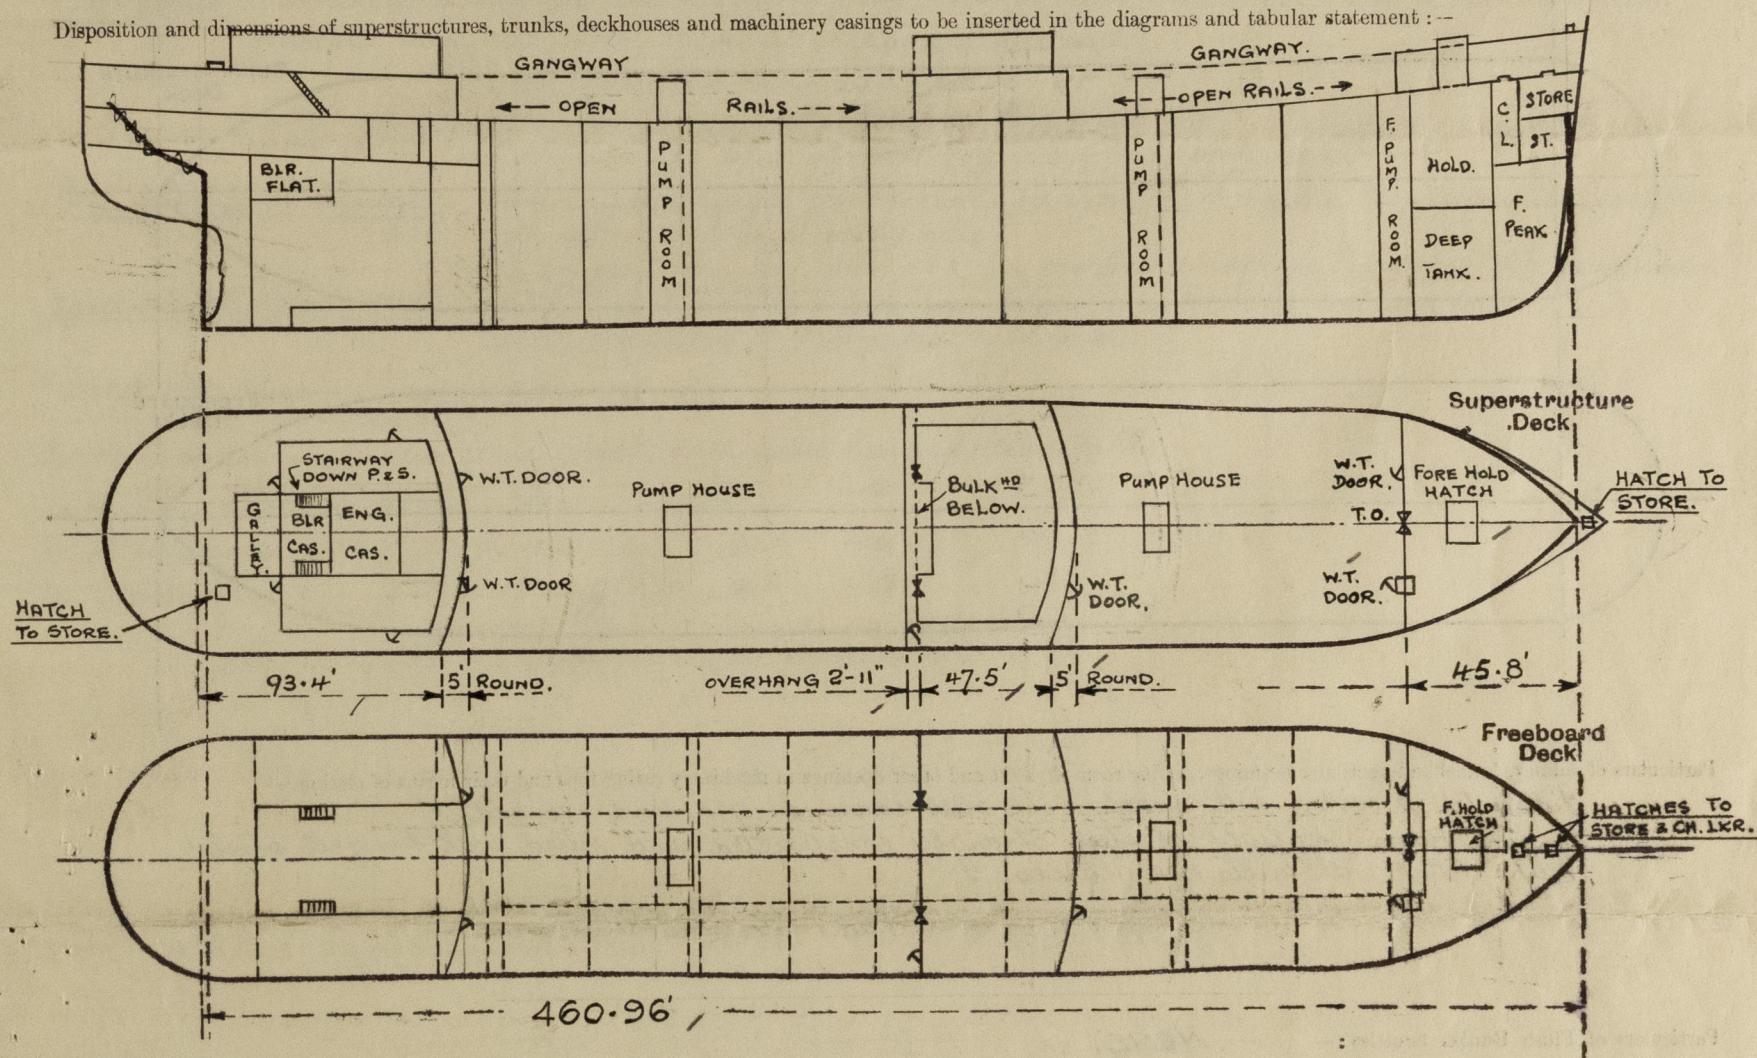 Disposition and dimensions of superstructures, trunks, deckhouses and machinery casings to be inserted in the diagrams and tabular statement :—
GANGWAY
GANGWAY.
OPEN RAILS.
OPEN RAILS.
BLR.
FLAT.
PUMP ROOM
PUMP ROOM
F. PUMP. ROOM.
HOLD.
DEEP
TANK.
C. L.
STORE
ST.
F.
PEAK
Superstructure
Deck
STAIRWAY
DOWN P. & S.
GALLEY.
BLR
CAS.
ENG.
CAS.
W.T. DOOR.
W.T. DOOR
PUMP HOUSE
BULKHD
BELOW.
PUMP HOUSE
W.T.
DOOR.
W.T.
DOOR.
FORE HOLD
HATCH
T.O.
W.T.
DOOR.
HATCH TO
STORE.
HATCH
TO STORE.
93.4'
5' ROUND.
OVERHANG 2'-11"
47.5'
5' ROUND.
45.8'
Freeboard
Deck
F. HOLD
HATCH
HATCHES TO
STORE & CH. LKR.
460.96'